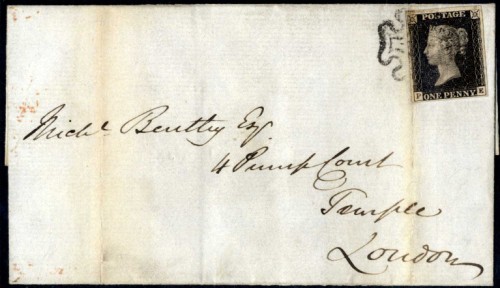 POSTAGE
P K
ONE PENNY
Michl. Bentley Esq.
4 Pump Court
Temple
London